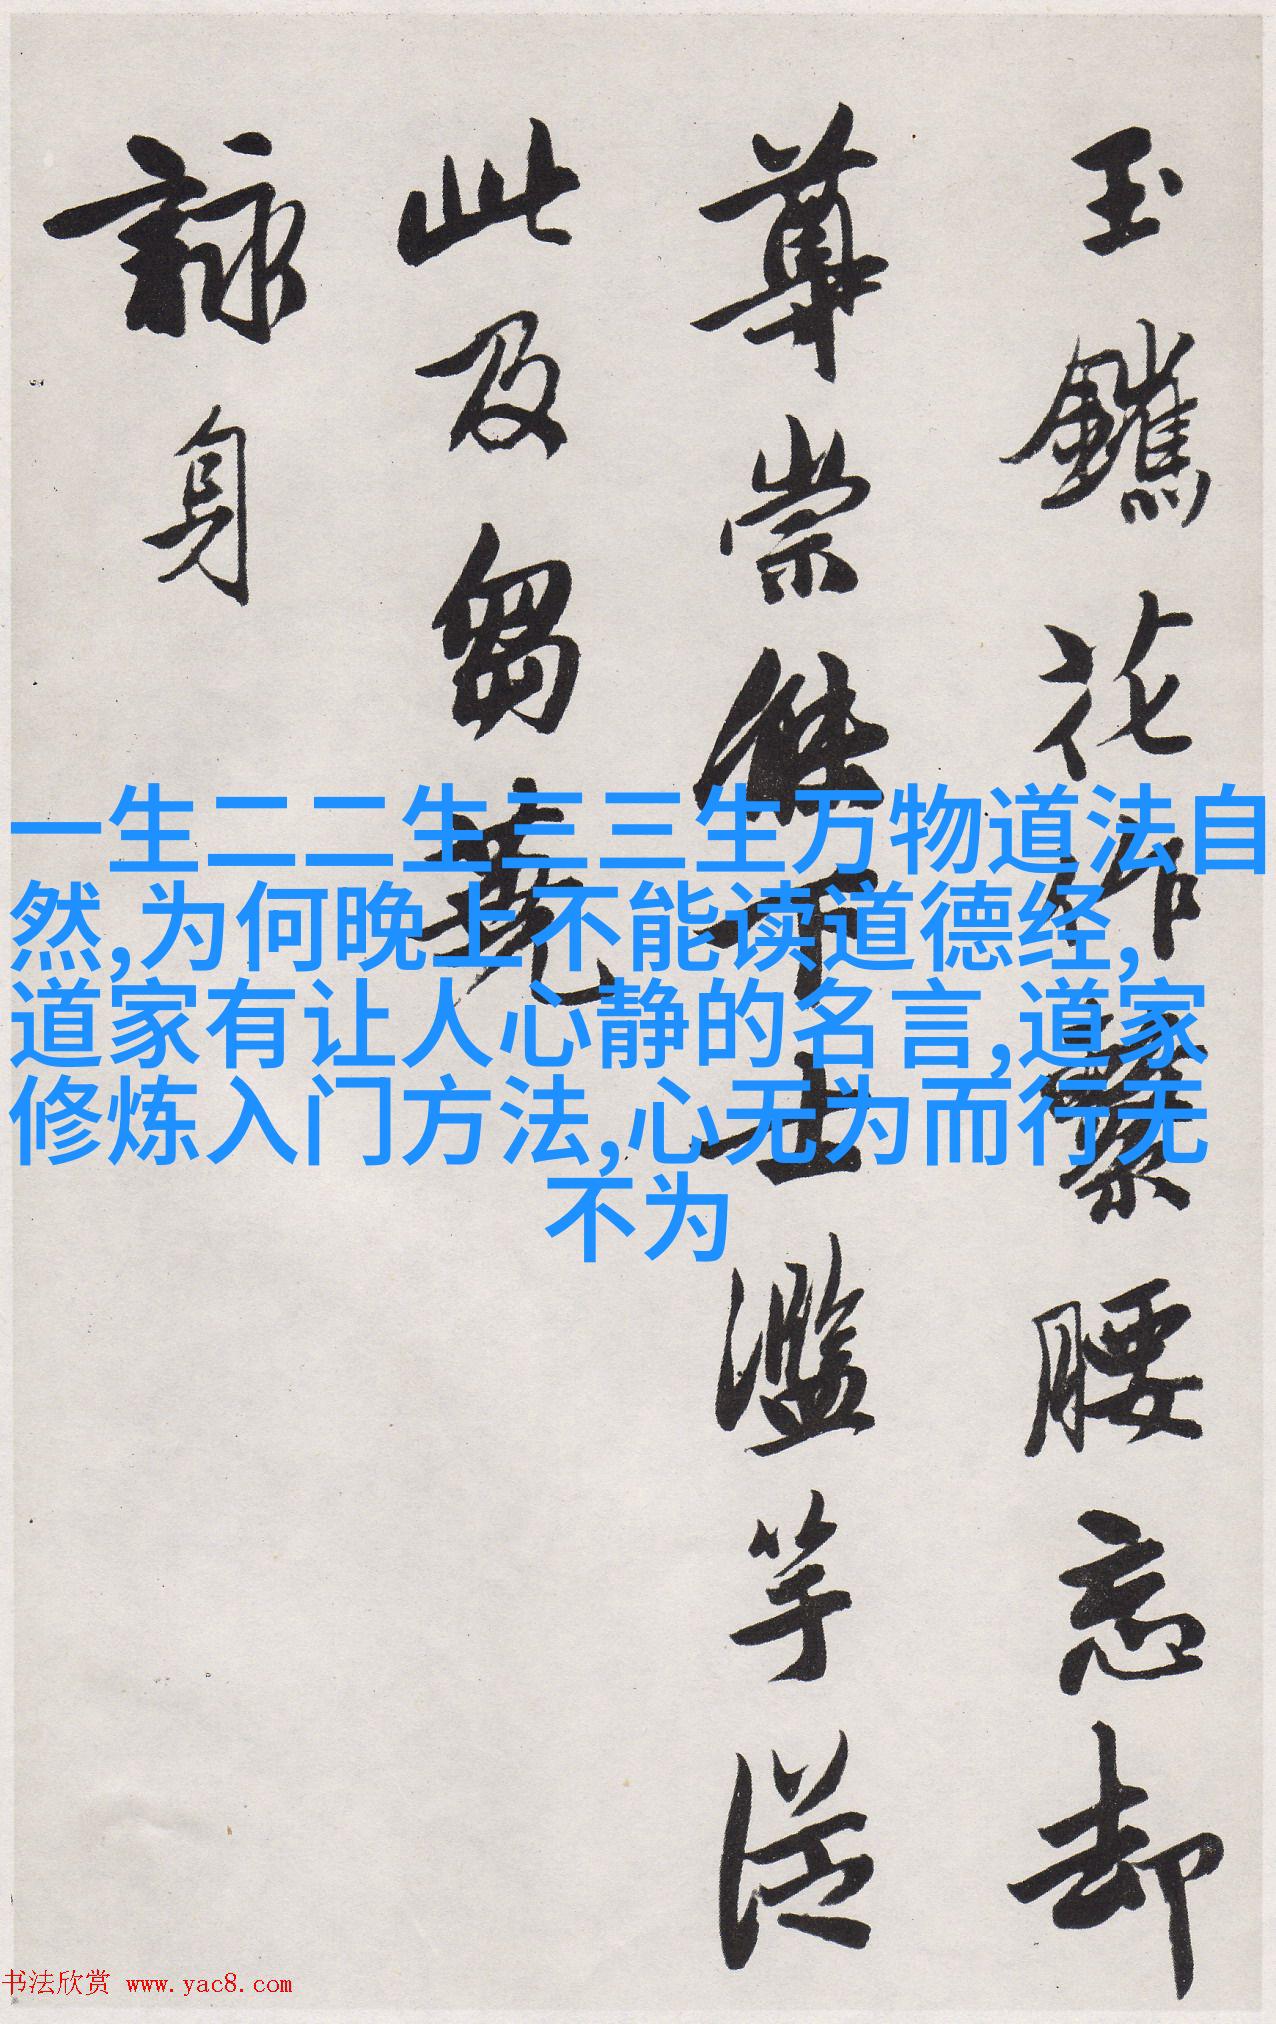 一生二二生三三生万物道法自
然,为何晚上不能读道德经,
道家有让人心静的名言,道家
修炼入门方法,心无为而行无
不为
玉花作繫腰忘却
崇下士濫竽從
此及芻蕘
詠身
书法欣赏 www.yac8.com